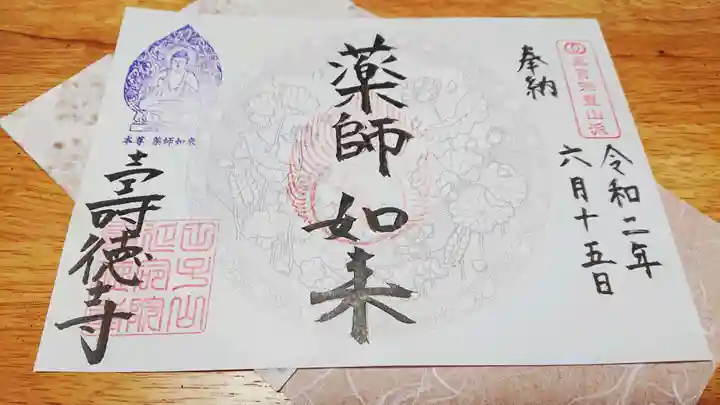 奉納
令和二年
六月十五日
薬師如来
本尊 薬師如来
壽徳寺